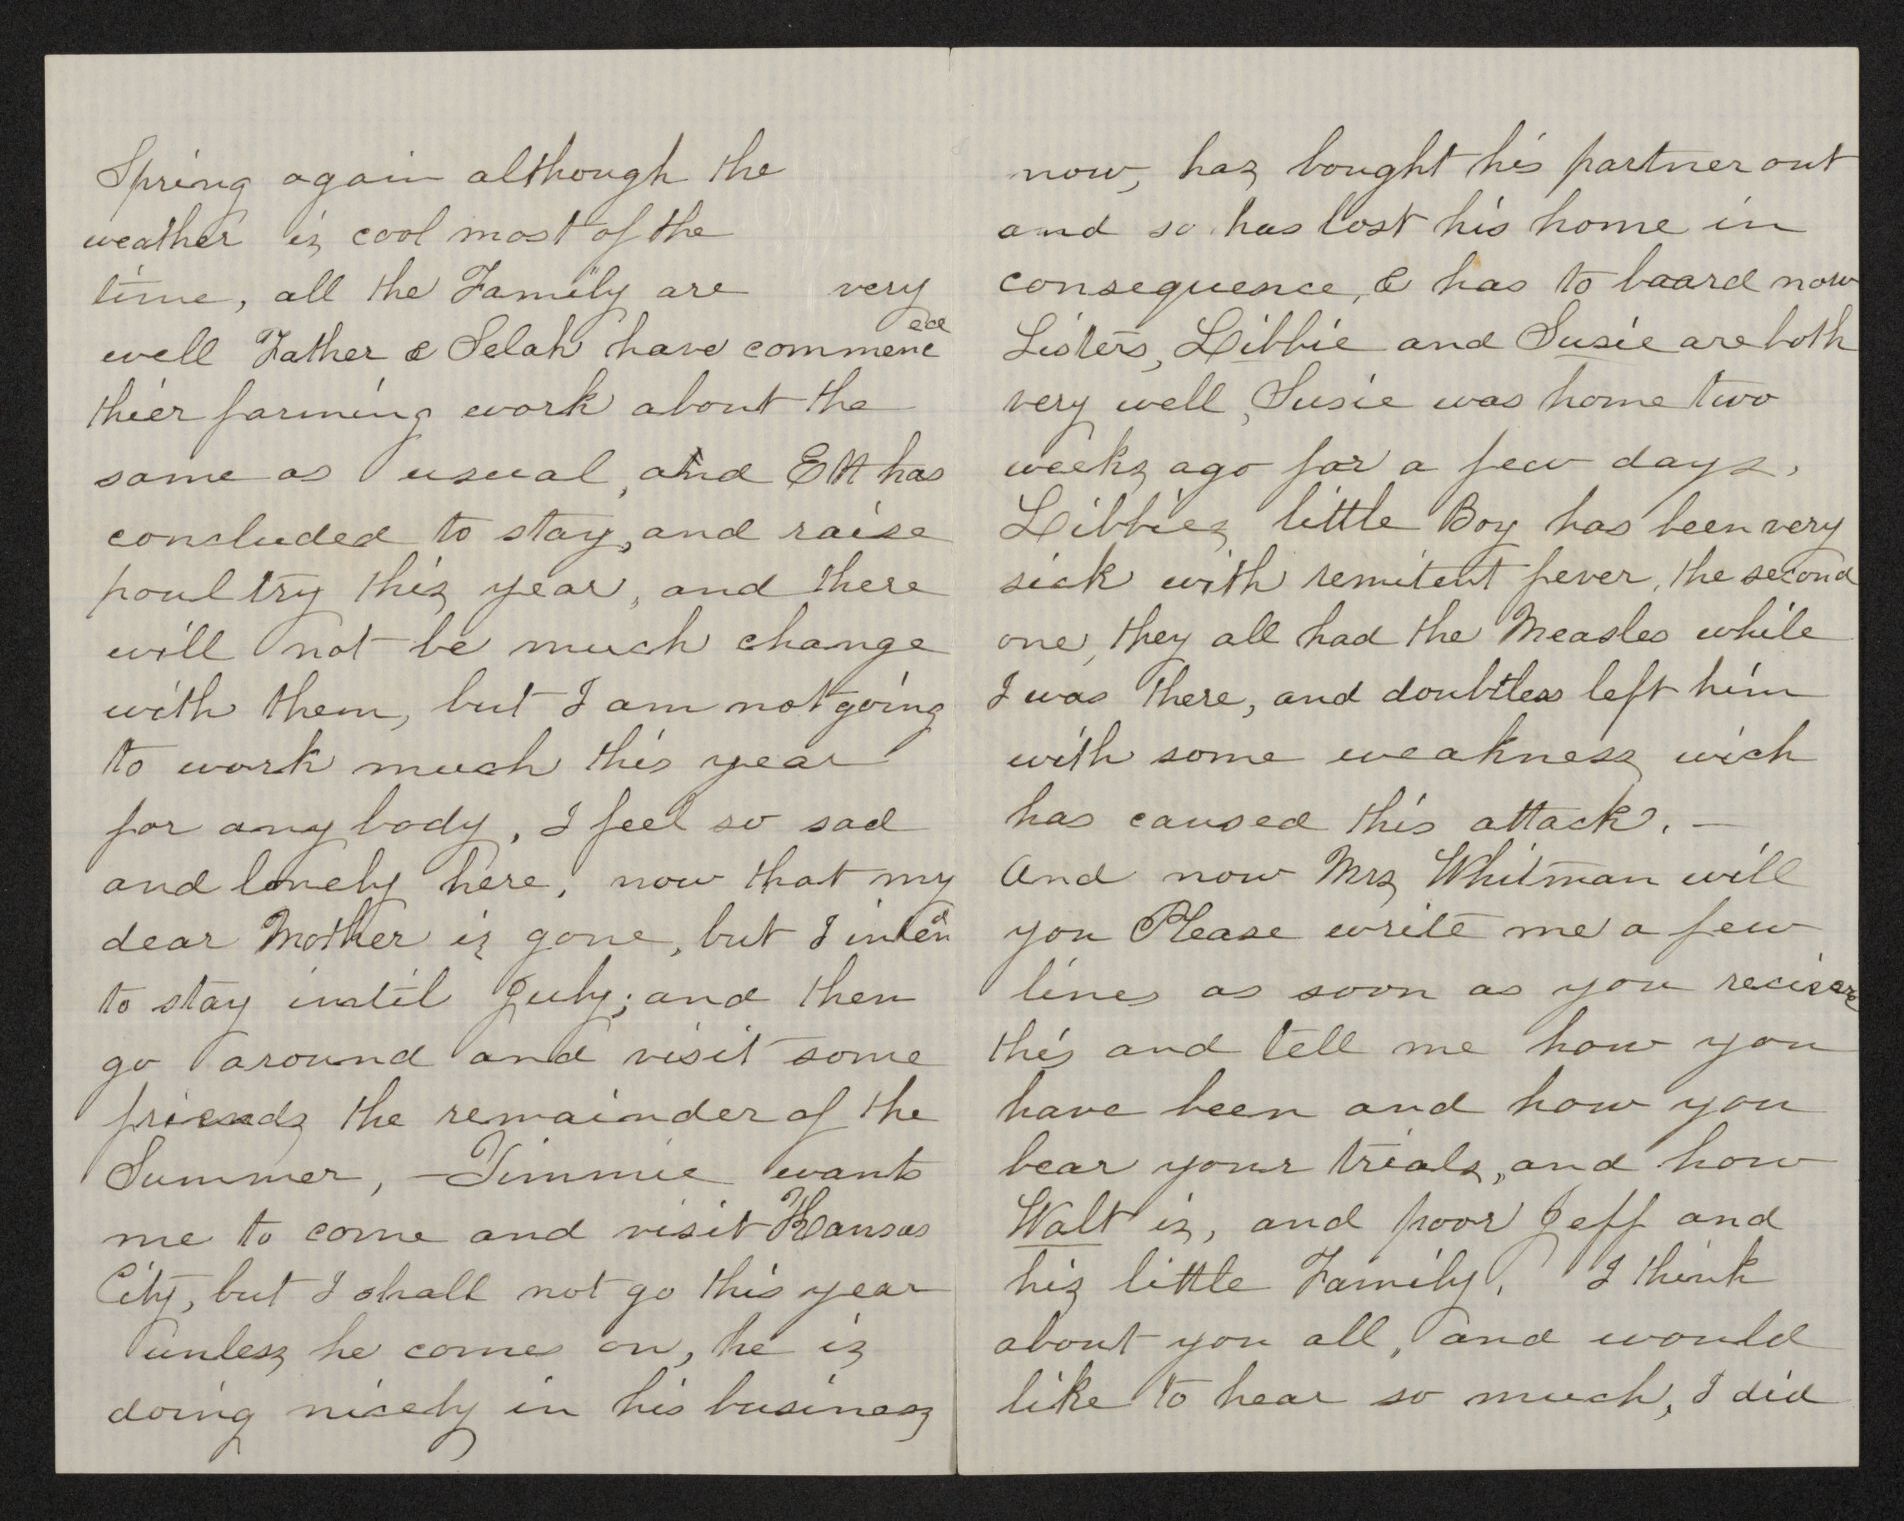 Spring again although the
weather is cool most of the
time, all the Family are very
well Father & Selah have commenced
thier farming work about the
same as usual, and Ett has
concluded to stay, and raise
poultry this year, and there
will not be much change
with them, but I am not going
to work much this year
for any body, I feel so sad
and lonely here, now that my
dear Mother is gone, but I intend
to stay until July; and then
go around and visit some
friends the remainder of the
Summer, — Jimmie wants
me to come and visit Kansas
City, but I shall not go this year
unless he comes on, he is
doing nicely in his business
now, has bought his partner out
and so has lost his home in
consequence, & has to board now
Sisters, Libbie and Susie are both
very well, Susie was home two
weeks ago for a few days,
Libbies little Boy has been very
sick with remitent fever, the second
one, they all had the Measles while
I was there, and doubtless left him
with some weakness wich
has caused this attack. —
And now Mrs Whitman will
you Please write me a few
lines as soon as you recieve
this and tell me how you
have been and how you
bear your trials, and how
Walt is, and poor Jeff and
his little Family. I think
about you all, and would
like to hear so much, I did